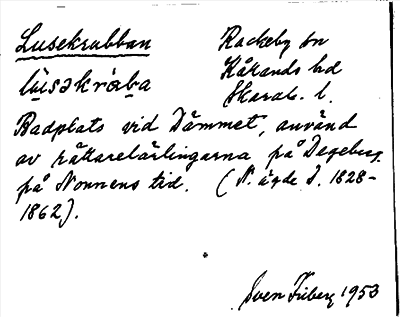 Lusekrubban Rackeby sn
lùsəkròba Kållands hd
Skarab. l.
Badplats vid Dämmet, använd
av rättarelärlingarna på Degeberg
på Nonnens tid. (N. ägde D. 1828-
1862).
Sven Friberg 1953